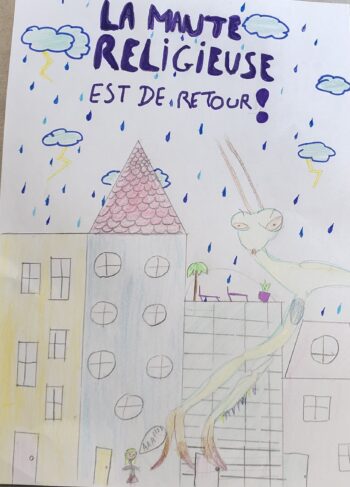 LA MAUTE
RELIGIEUSE
EST DE RETOUR!
AAAHH